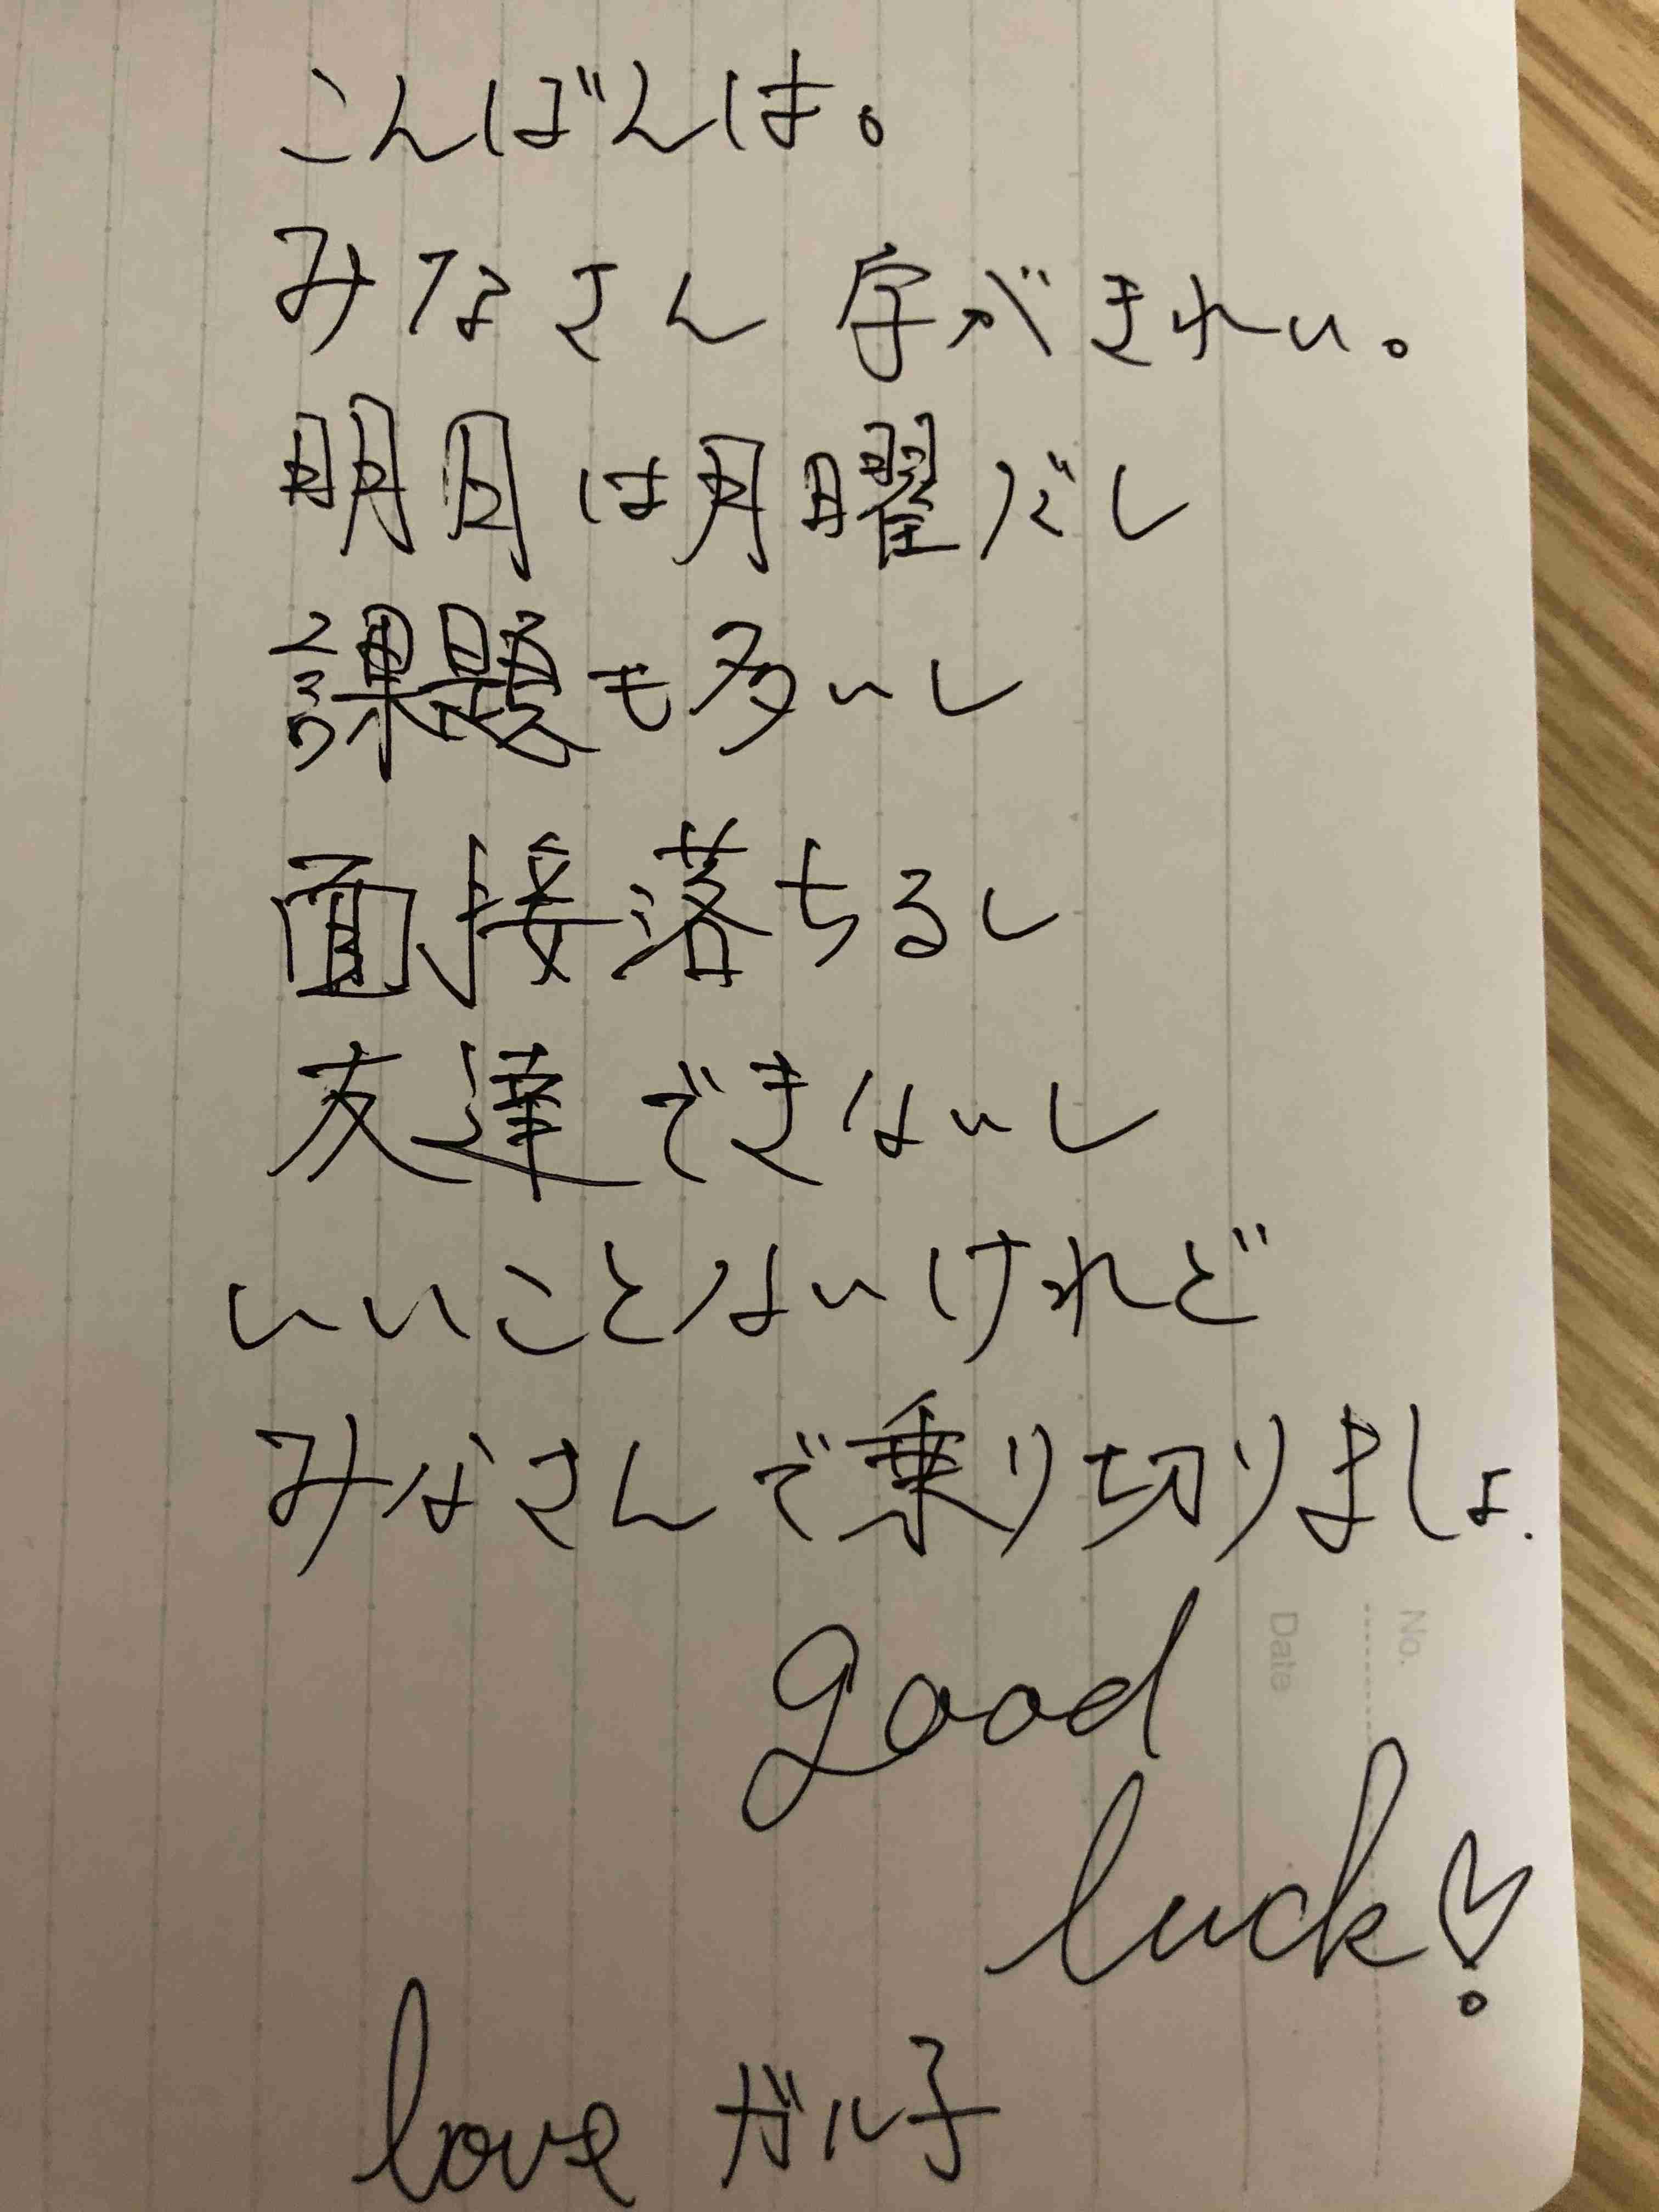 こんばんは。
みなさん 字がきれい。
明日は月曜だし
課題も多いし
面接落ちるし
友達できないし
いいことないけれど
みなさんで乗り切りましょ.
good
luck♡
love ガル子
No.
Date